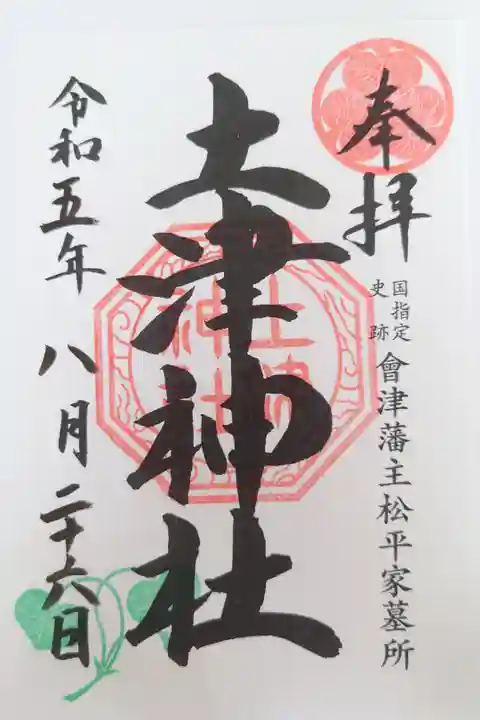 奉拝
国指定
史跡
會津藩主松平家墓所
土津神社
土津
神社
令和五年 八月 二十六日